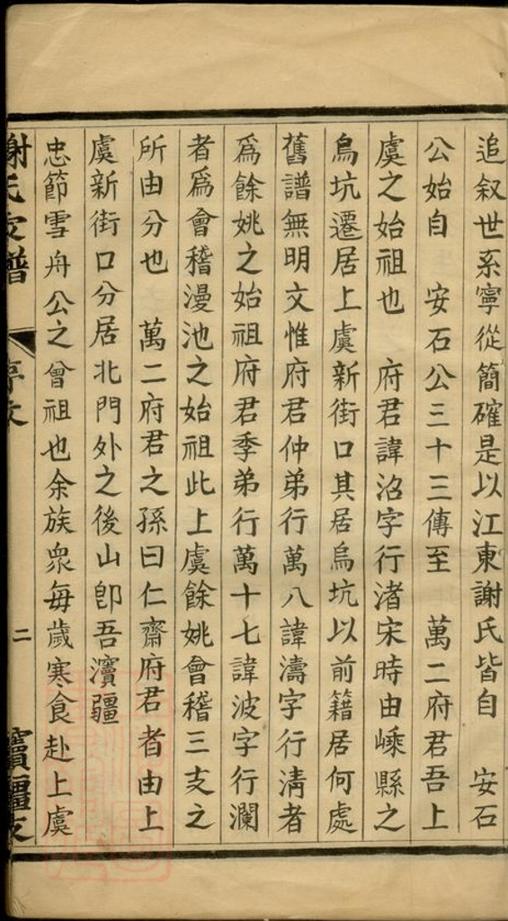 追叙世系寧從簡確是以江東謝氏皆自　安石
公始自　安石公三十三傳至　萬二府君吾上
虞之始祖也　府君諱沼字行渚宋時由嵊縣之
烏坑遷居上虞新街口其居烏坑以前籍居何處
舊譜無明文惟府君仲弟行萬八諱濤字行淸者
爲餘姚之始祖府君季弟行萬十七諱波字行瀾
者爲會稽漫池之始祖此上虞餘姚會稽三支之
所由分也　萬二府君之孫曰仁齋府君者由上
虞新街口分居北門外之後山卽吾瀆疆
忠節雪舟公之曾祖也余族衆每歲寒食赴上虞
謝氏支譜　序文　二　竇疆支